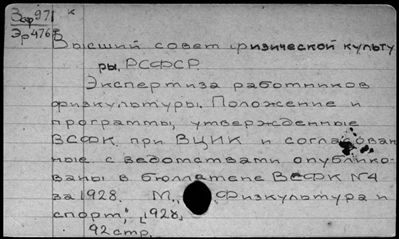 Зар971 к
Эр4768
Высший совет физической культу
ры, РСФСР.
Экспертиза работников
физкультуры. Положение и
программы, утвержденные
ВСФК при ВЦИК и согласован
ные с ведомствами опублико-
ваны в бюллетене ВСФК №4
за 1928. М., Физкультура и
спорт, 1928.
92 стр.